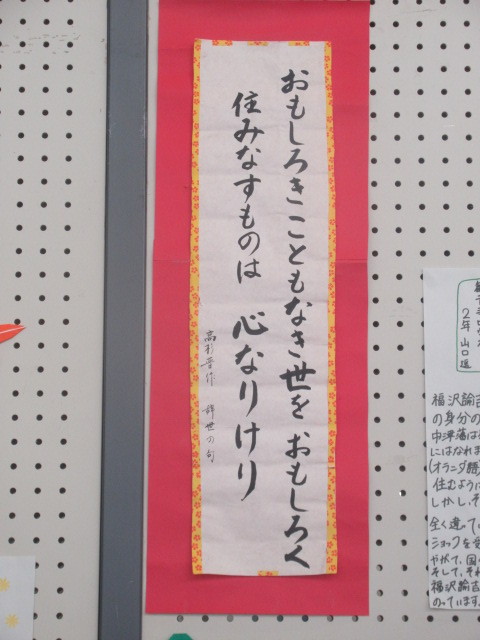 おもしろきこともなき世をおもしろく
住みなすものは 心なりけり
高杉晋作 辞世の句
2年 山口遥
福沢諭吉
の身分の
中津藩は
にはなれま
(オランダ語
住むように
しかし、そ
全く違ってい
ショックを受
やがて、国
そして、それ
福沢諭吉
のっています。